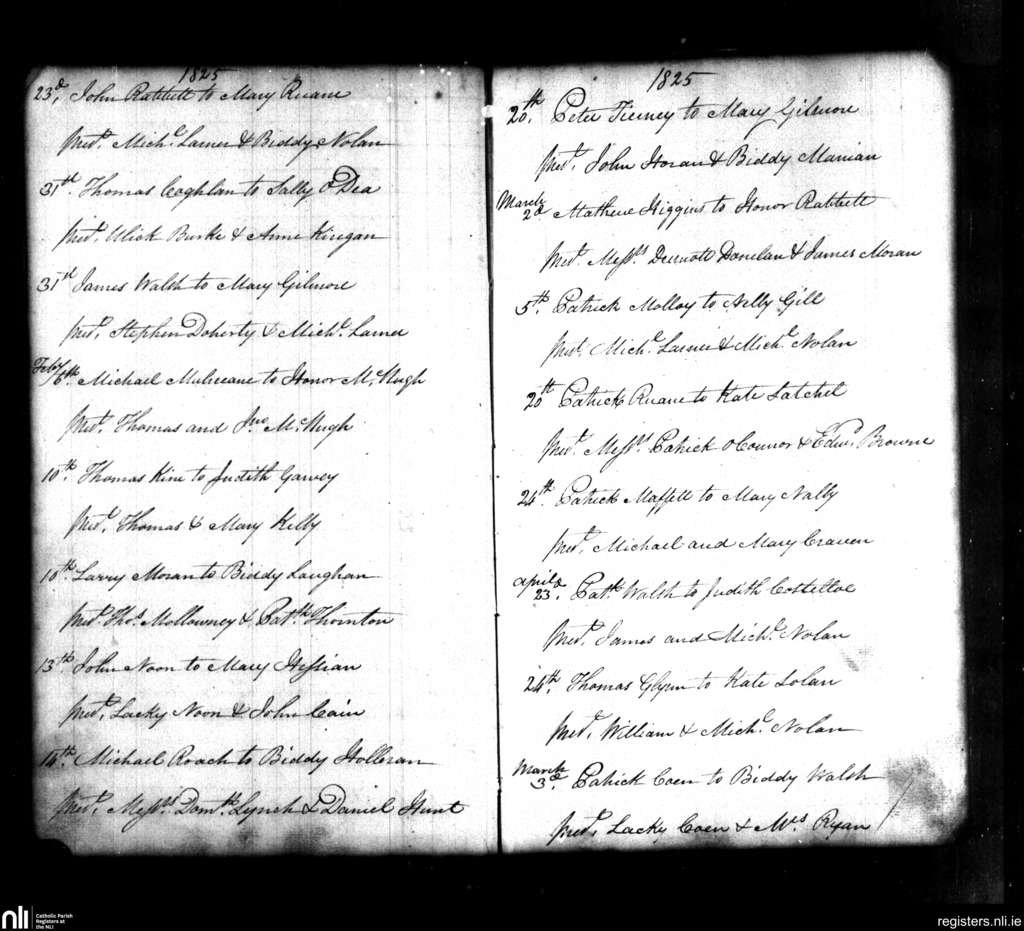 1825
23d. John Ratitutt to Mary Ruane
Prest. Michl. Larner & Biddy Nolan
31st Thomas Coghlan to Sally O'Dea
Prest. Ulick Burke & Anne Kiregan
31st James Walsh to Mary Gilmore
Prest. Stephen Doherty & Michl. Larner
Feby 6th. Michael Mulreane to Honor McHugh
Prest. Thomas and Jno. McHugh
10th. Thomas Kine to Judith Garvey
Prest. Thomas & Mary Kelly
10th. Larry Moran to Biddy Laughan
Prest. Thos. Mollowney & Cath. Thornton
13th John Noon to Mary Hessian
Prest. Lacky Noon & John Cain
14th. Michael Roach to Biddy Holleran
Prest. Messrs. Domk. Lynch & Daniel Hunt
1825
20th. Peter Tierney to Mary Gilmore
Prest. John Horan & Biddy Manian
March 2d Mathew Higgins to Honor Ratitutt
Prest. Messrs. Dermott Donelan & James Moran
5th. Patrick Molloy to Nelly Gill
Prest. Michl. Larner & Michl. Nolan
20th Patrick Ruane to Kate Latchel
Prest. Messrs. Patrick O Connor & Edwd. Browne
24th. Patrick Maffett to Mary Nally
Prest. Michael and Mary Craven
April 23d. Patk. Walsh to Judith Costelloe
Prest. James and Michl. Nolan
24th. Thomas Glynn to Kate Lolan
Prest. William & Michl. Nolan
March 3d. Patrick Coen to Biddy Walsh
Prest. Lacky Coen & Mrs Ryan
nli
Catholic Parish
Registers at
the NLI
registers.nli.ie